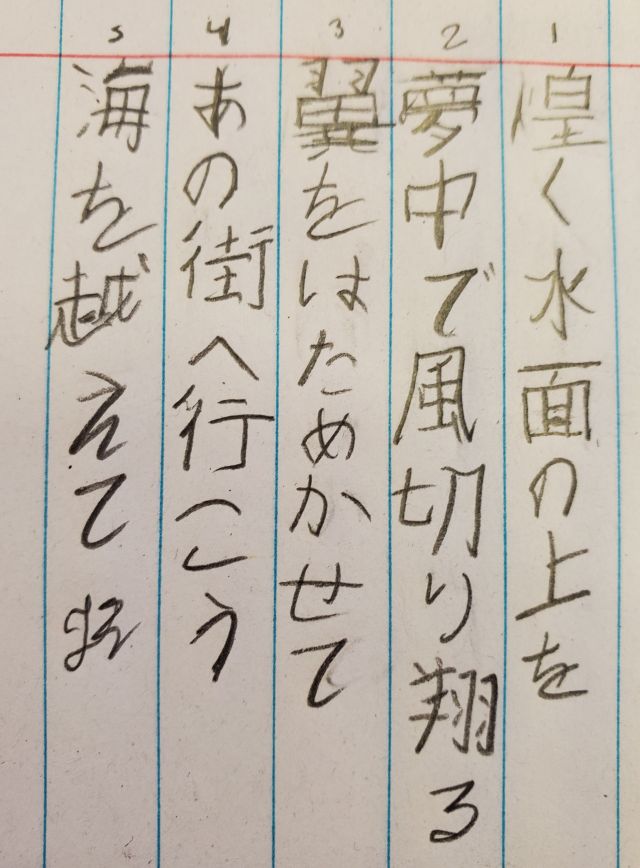 1
煌く水面の上を
2
夢中で風切り翔る
3
翼をはためかせて
4
あの街へ行こう
5
海を越えて